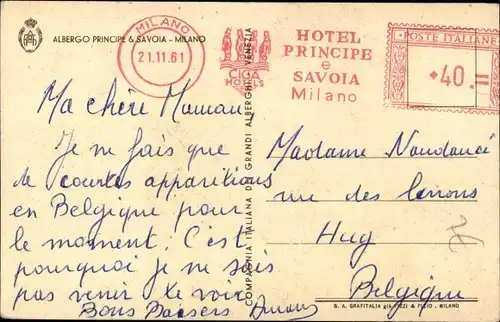 ALBERGO PRINCIPE & SAVOIA - MILANO
MILANO
21.11.61
CIGA
HOTELS
HOTEL
PRINCIPE
e
SAVOIA
Milano
POSTE ITALIANE
40
Ma chère Maman,
Je ne fais que
de courtes apparitions
en Belgique pour
le moment. C'est
pourquoi je ne sais
pas venir te voir
Bons Baisers
COMPAGNIA ITALIANA DEI GRANDI ALBERGHI VENEZIA
Madame
rue des
Huy
Belgique
S. A. GRAFITALIA già PIZZI & PIZIO - MILANO